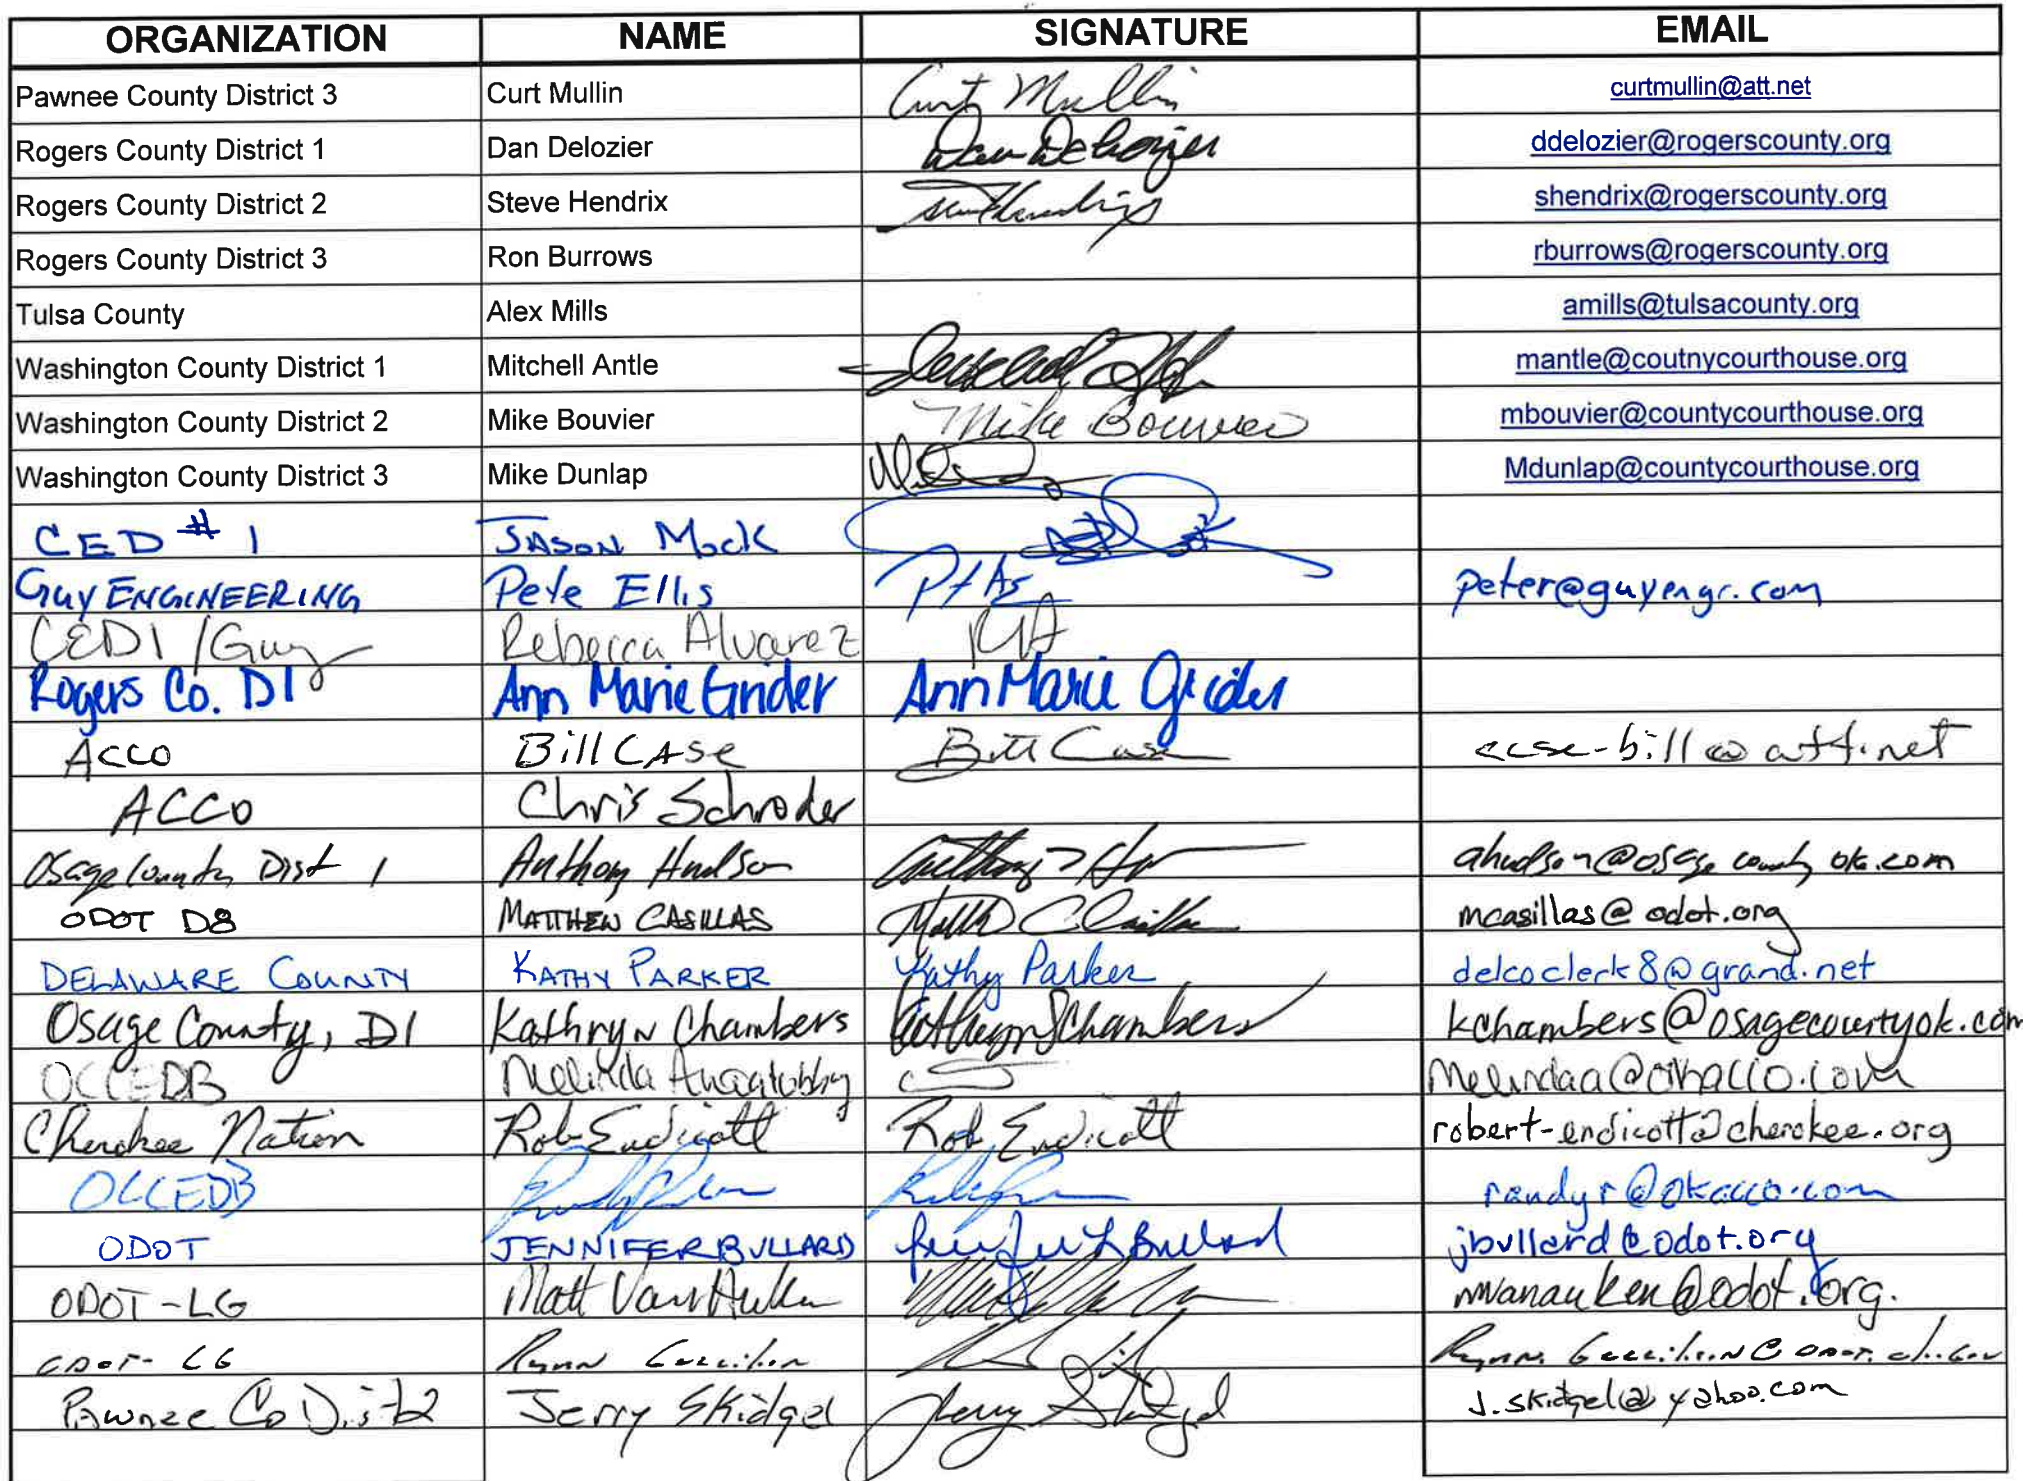 ORGANIZATION NAME SIGNATURE EMAIL
Pawnee County District 3 Curt Mullin Curt Mullin curtmullin@att.net
Rogers County District 1 Dan Delozier Dan DeLozier ddelozier@rogerscounty.org
Rogers County District 2 Steve Hendrix shendrix@rogerscounty.org
Rogers County District 3 Ron Burrows rburrows@rogerscounty.org
Tulsa County Alex Mills amills@tulsacounty.org
Washington County District 1 Mitchell Antle mantle@coutnycourthouse.org
Washington County District 2 Mike Bouvier Mike Bouvier mbouvier@countycourthouse.org
Washington County District 3 Mike Dunlap Mdunlap@countycourthouse.org
CED # 1 JASON Mock
Guy ENGINEERING Pete Ellis peter@guyengr.com
CED1 / Guy Rebecca Alvarez RA
Rogers Co. D1 Ann Marie Grider Ann Marie Grider
ACCO Bill CASE Bill Case case-bill@att.net
ACCO Chris Schroder
Osage County Dist 1 Anthony Hudson Anthony ahudson@osagecountyok.com
ODOT D8 MATTHEW CASILLAS mcasillas@odot.org
DELAWARE COUNTY KATHY PARKER Kathy Parker delcoclerk8@grand.net
Osage County, D1 Kathryn Chambers Kathryn Chambers kchambers@osagecountyok.com
OCCEDB Melinda
Cherokee Nation Rob Endicott Rob Endicott robert-endicott@cherokee.org
OCCEDB randyr@okacco.com
ODOT JENNIFER BULLARD Jennifer Bullard jbullard@odot.org
ODOT-LG Matt mvanauken@odot.org.
ODOT-LG
Pawnee Co Dist 2 Jerry Skidgel Jerry Skidgel J.skidgel@yahoo.com